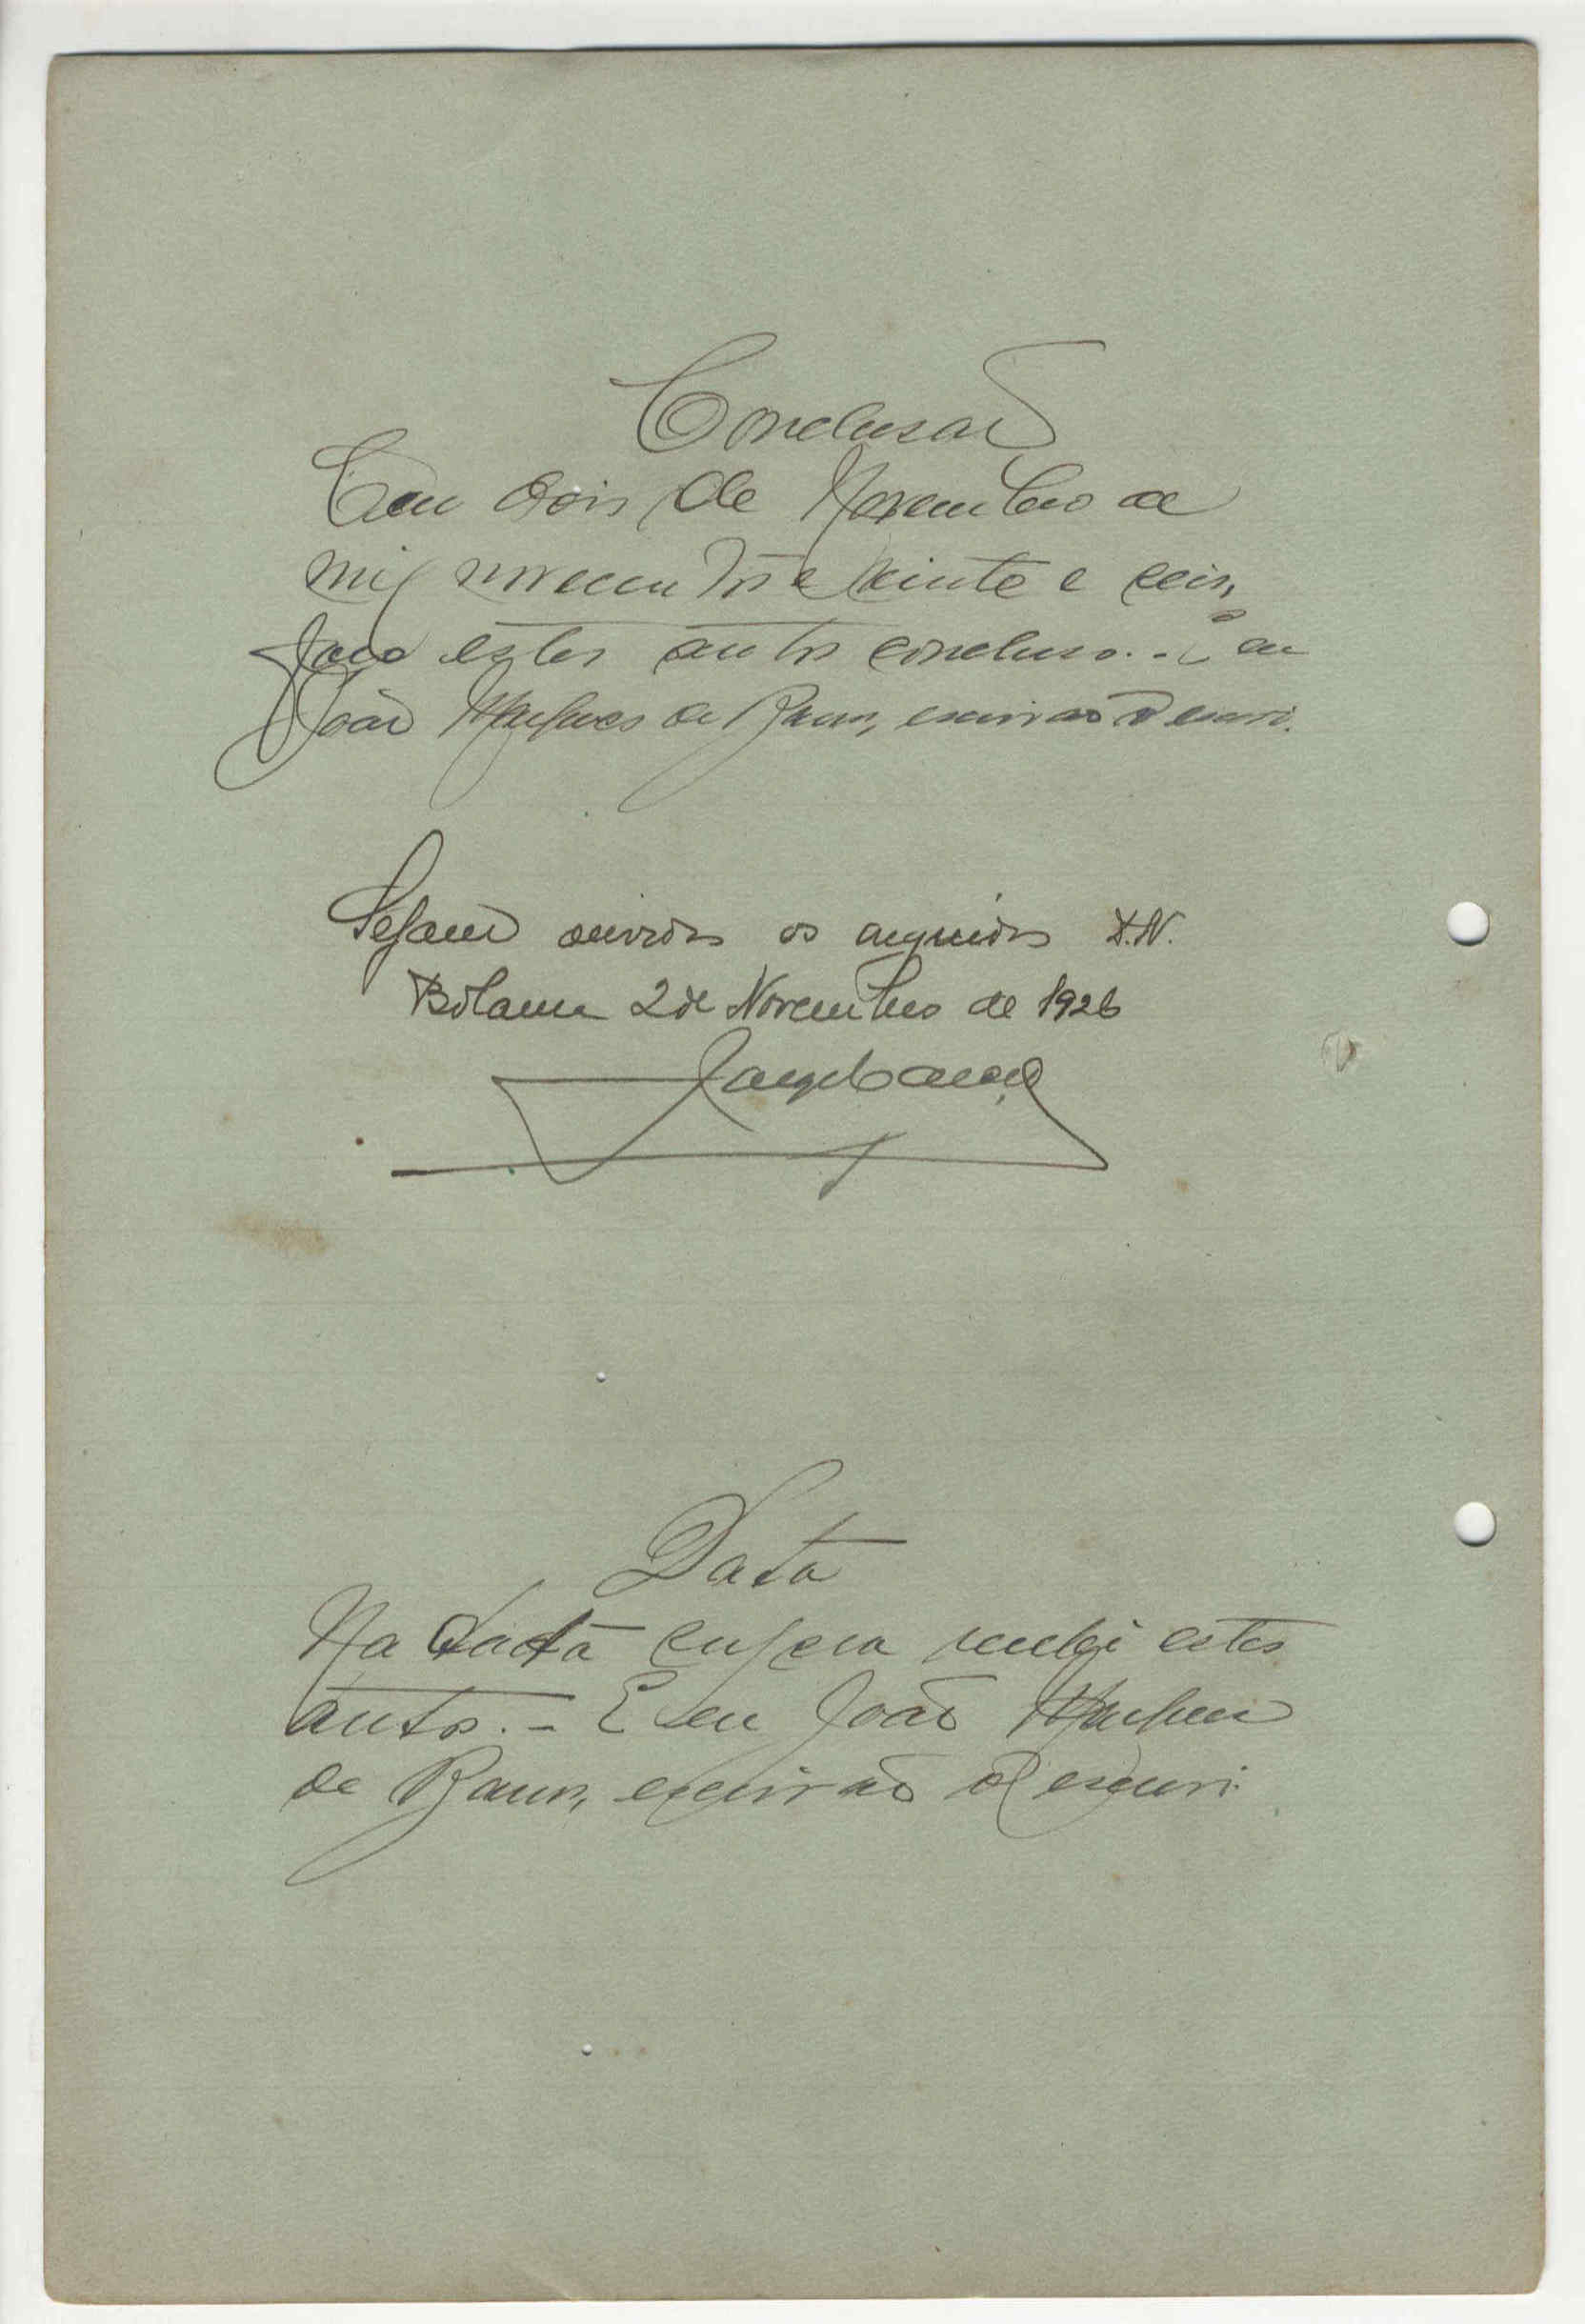 Conclusão
Em dois de Novembro de
mil novecentos e vinte e seis,
faço estes autos conclusos. - E eu
João de Barros, escrivão o escrevi.
Sejam ouvidos os arguidos D.N.
Bolama 2 de Novembro de 1926
Data
Na data supra recebi estes
autos. - E eu João
de Barros, escrivão o escrevi.